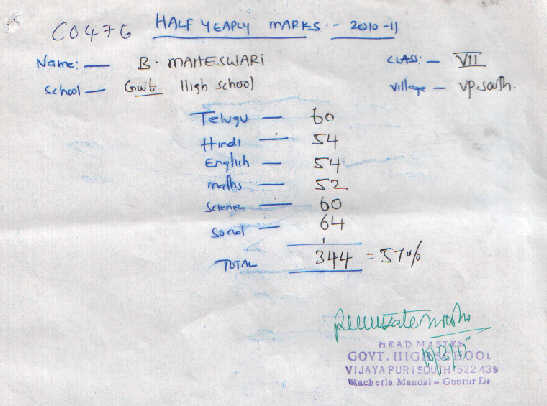 C0476 HALF YEARLY MARKS - 2010-11
Name: — B. MAHESWARI CLASS: - VII
School — Govt. High School Village - V.P. South.
Telugu — 60
Hindi — 54
English — 54
maths — 52
Science — 60
Social — 64
TOTAL 344 = 57%
HEAD MASTER
GOVT. HIGH SCHOOL
VIJAYAPURI SOUTH-522 439
Macherla Mandal - Guntur Dt